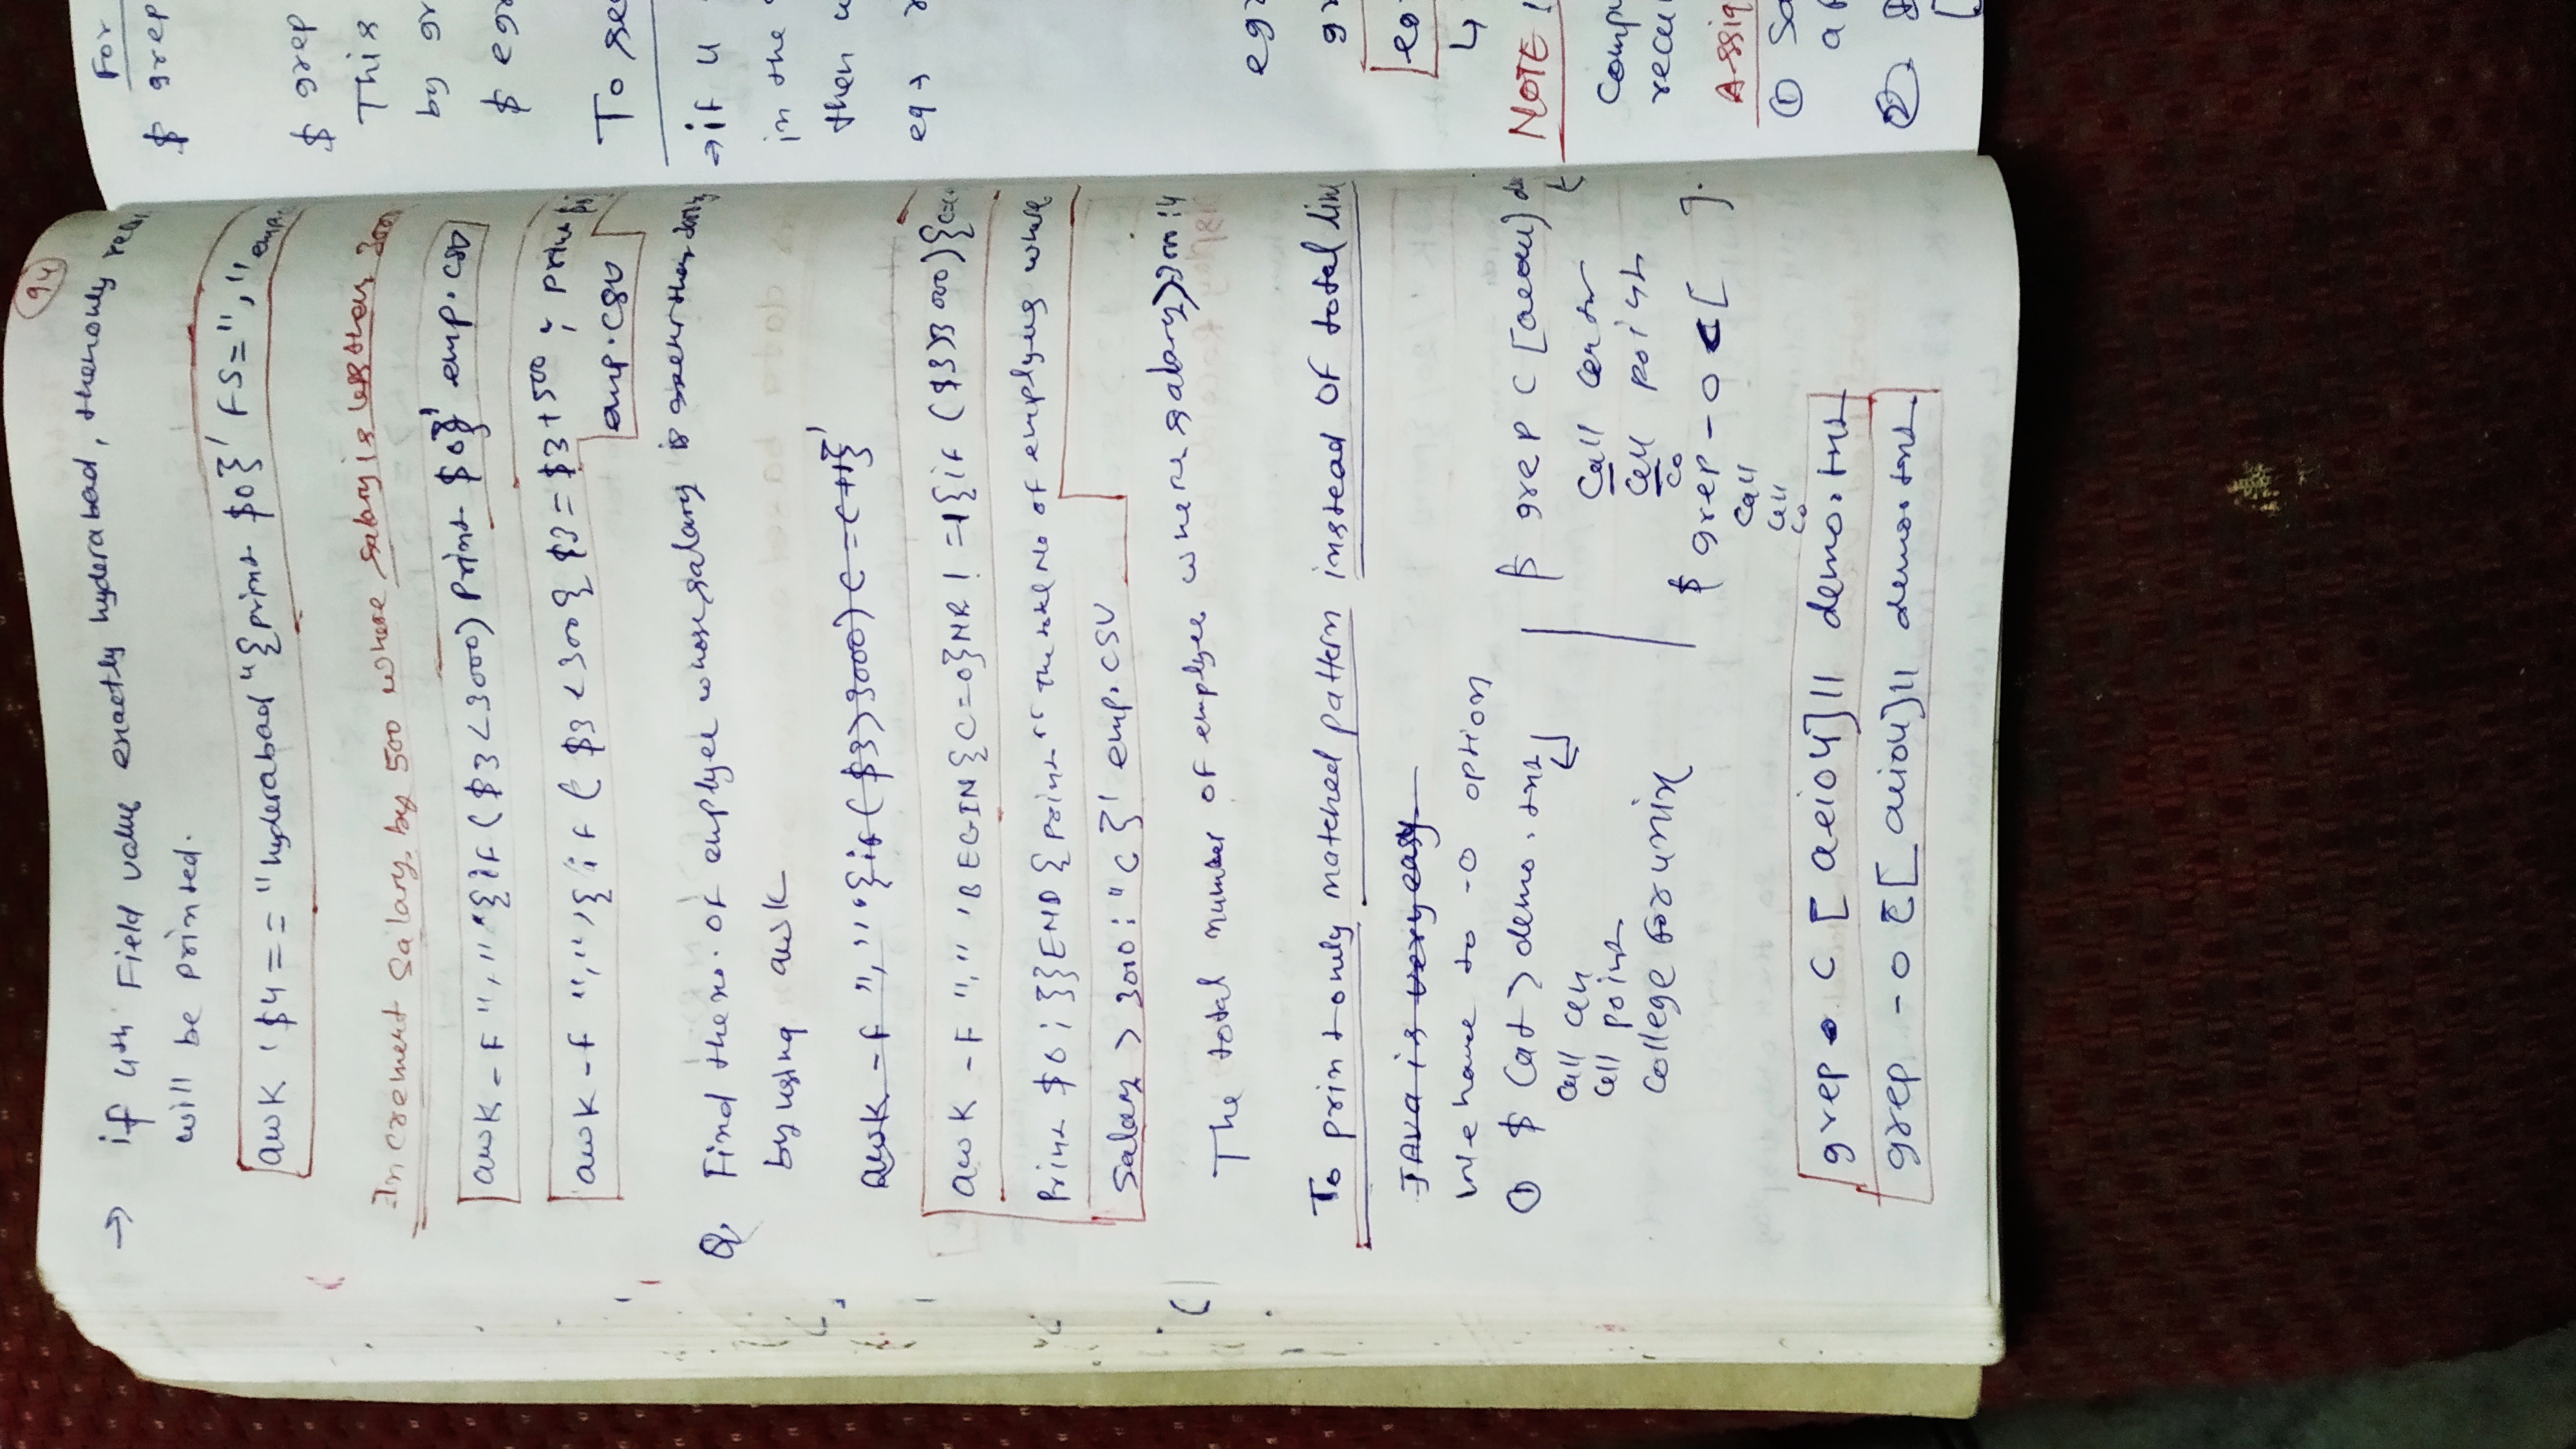 94
→ if 4th Field value exactly hyderabad, then only
will be printed.
awk '$4=="hyderabad"{print $0}' FS="," emp.
Increment Salary by 500 where salary is less than 3000
awk -F "," '{if($3<3000) Print $0}' emp.csv
awk -F "," '{if($3<300{$3=$3+500; print $0
emp.csv
Q. Find the no. of emplyee whose salary is than
by using awk
awk -F "," '{if($3>3000) C=C+1}'
awk -F "," 'BEGIN{C=0}NR!=1{if($3>3000){C=C
Print $0;}}END{print "The total No of emplyees whose
Salary > 3000:"C}' emp.csv
The total number of emplyee where salary>3000:4
To print only matched pattern instead of total line
JAva is very easy
We have to -o option
① $ Cat > demo.txt
Call cen
Cell point
College for unix
$ grep C[aeiou]
Call Center
Cell point
Co
$ grep -o C[ ].
Call
Cell
Co
grep C[aeiou]ll demo.txt
grep -o C[aeiou]ll demo.txt
For
$ grep
$ grep
This
by gr
$ egr
To se
→ if u
in the
then
eg →
egr
gr
NOTE
Comp
recu
Assig
① Sa
②